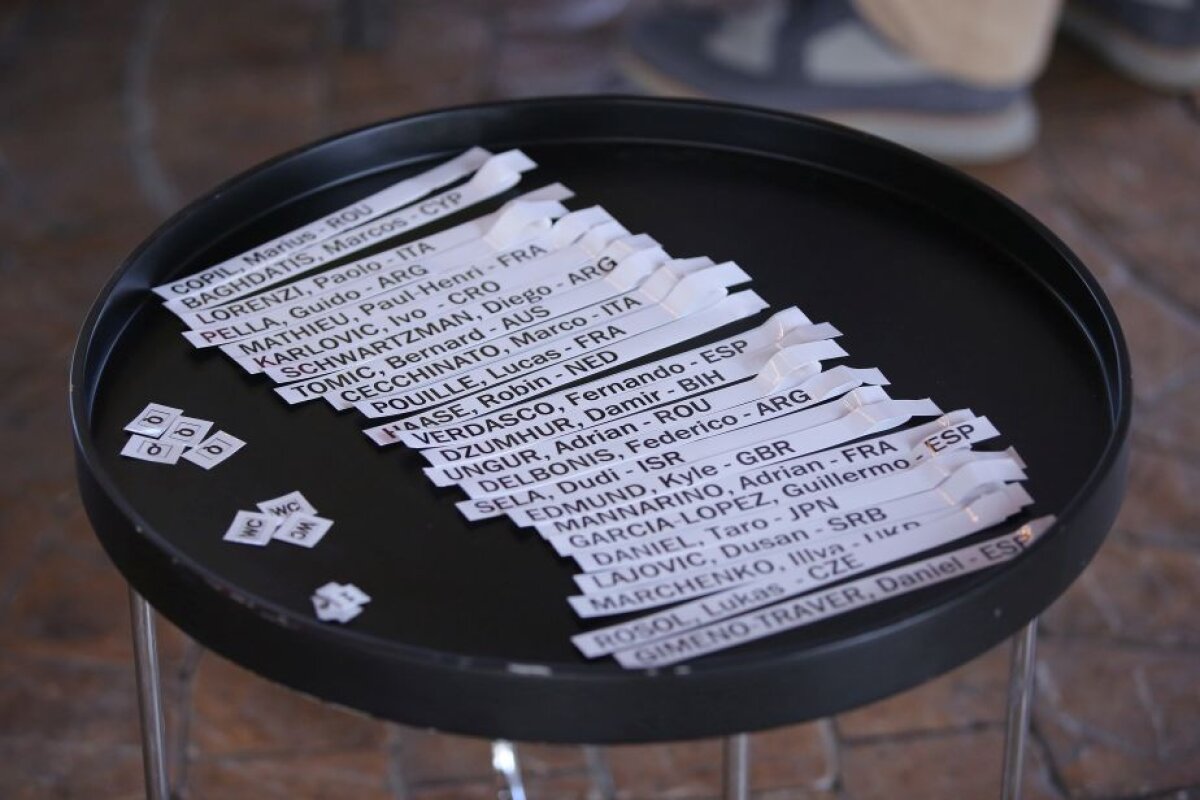 COPIL, Marius - ROU
BAGHDATIS, Marcos - CYP
LORENZI, Paolo - ITA
PELLA, Guido - ARG
MATHIEU, Paul-Henri - FRA
KARLOVIC, Ivo - CRO
SCHWARTZMAN, Diego - ARG
TOMIC, Bernard - AUS
CECCHINATO, Marco - ITA
POUILLE, Lucas - FRA
HAASE, Robin - NED
VERDASCO, Fernando - ESP
DZUMHUR, Damir - BIH
UNGUR, Adrian - ROU
DELBONIS, Federico - ARG
SELA, Dudi - ISR
EDMUND, Kyle - GBR
MANNARINO, Adrian - FRA
GARCIA-LOPEZ, Guillermo - ESP
DANIEL, Taro - JPN
LAJOVIC, Dusan - SRB
MARCHENKO, Illya -
ROSOL, Lukas - CZE
GIMENO-TRAVER, Daniel - ESP
Q
Q
Q
Q
WC
WC
WC